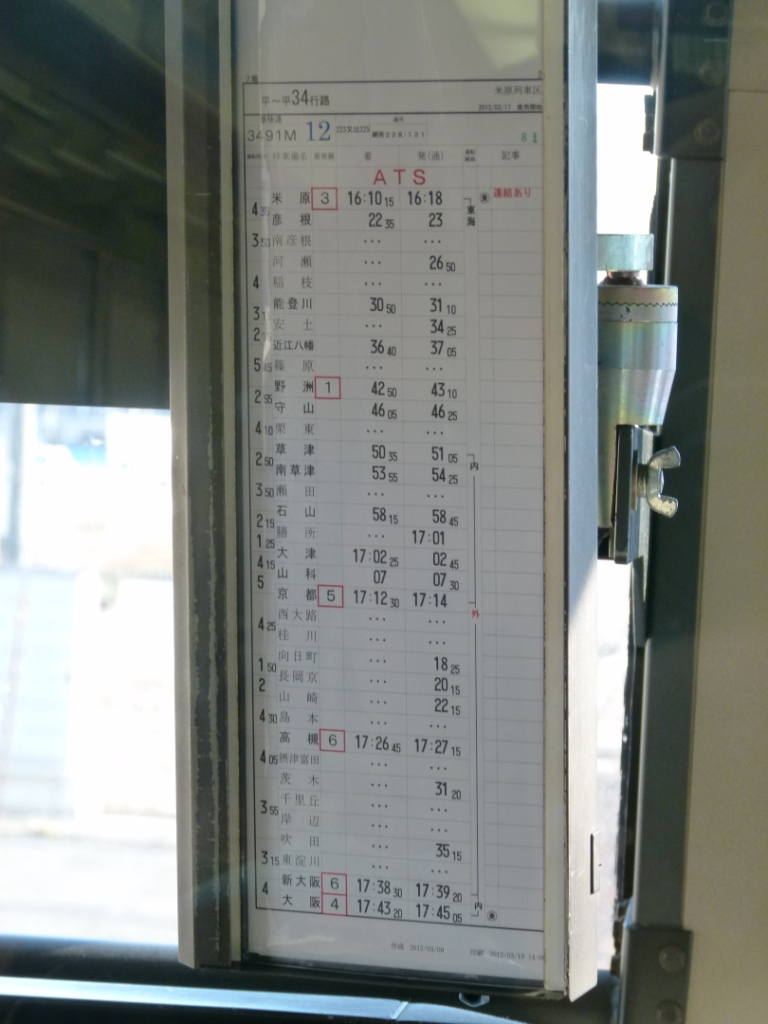 平～平34行路 米原列車区
3491M 12 223又は225 81
着 発(通) 記事
ATS
米原 3 16:10 15 16:18 連結あり
4 35 東海
彦根 22 35 23
3 50 南彦根 ... ...
河瀬 ... 26 50
4 稲枝 ... ...
能登川 30 50 31 10
3 15
安土 ... 34 25
2 15
近江八幡 36 40 37 05
5 45 篠原 ... ...
野洲 1 42 50 43 10
2 55
守山 46 05 46 25
4 10 栗東 ... ...
草津 50 35 51 05 内
2 50
南草津 53 55 54 25
3 50 瀬田 ... ...
石山 58 15 58 45
2 15
膳所 ... 17:01
1 25
大津 17:02 25 02 45
4 15
山科 07 07 30
5
京都 5 17:12 30 17:14
西大路 ... ... 外
4 25
桂川 ... ...
向日町 ... 18 25
1 50
長岡京 ... 20 15
2
山崎 ... 22 15
4 30 島本 ... ...
高槻 6 17:26 45 17:27 15
4 05 摂津富田 ... ...
茨木 ... 31 20
千里丘 ... ...
3 55
岸辺 ... ...
吹田 ... 35 15
3 15 東淀川 ... ...
新大阪 6 17:38 30 17:39 20
4 内
大阪 4 17:43 20 17:45 05
作成 2012/03/09 印刷 2012/03/10